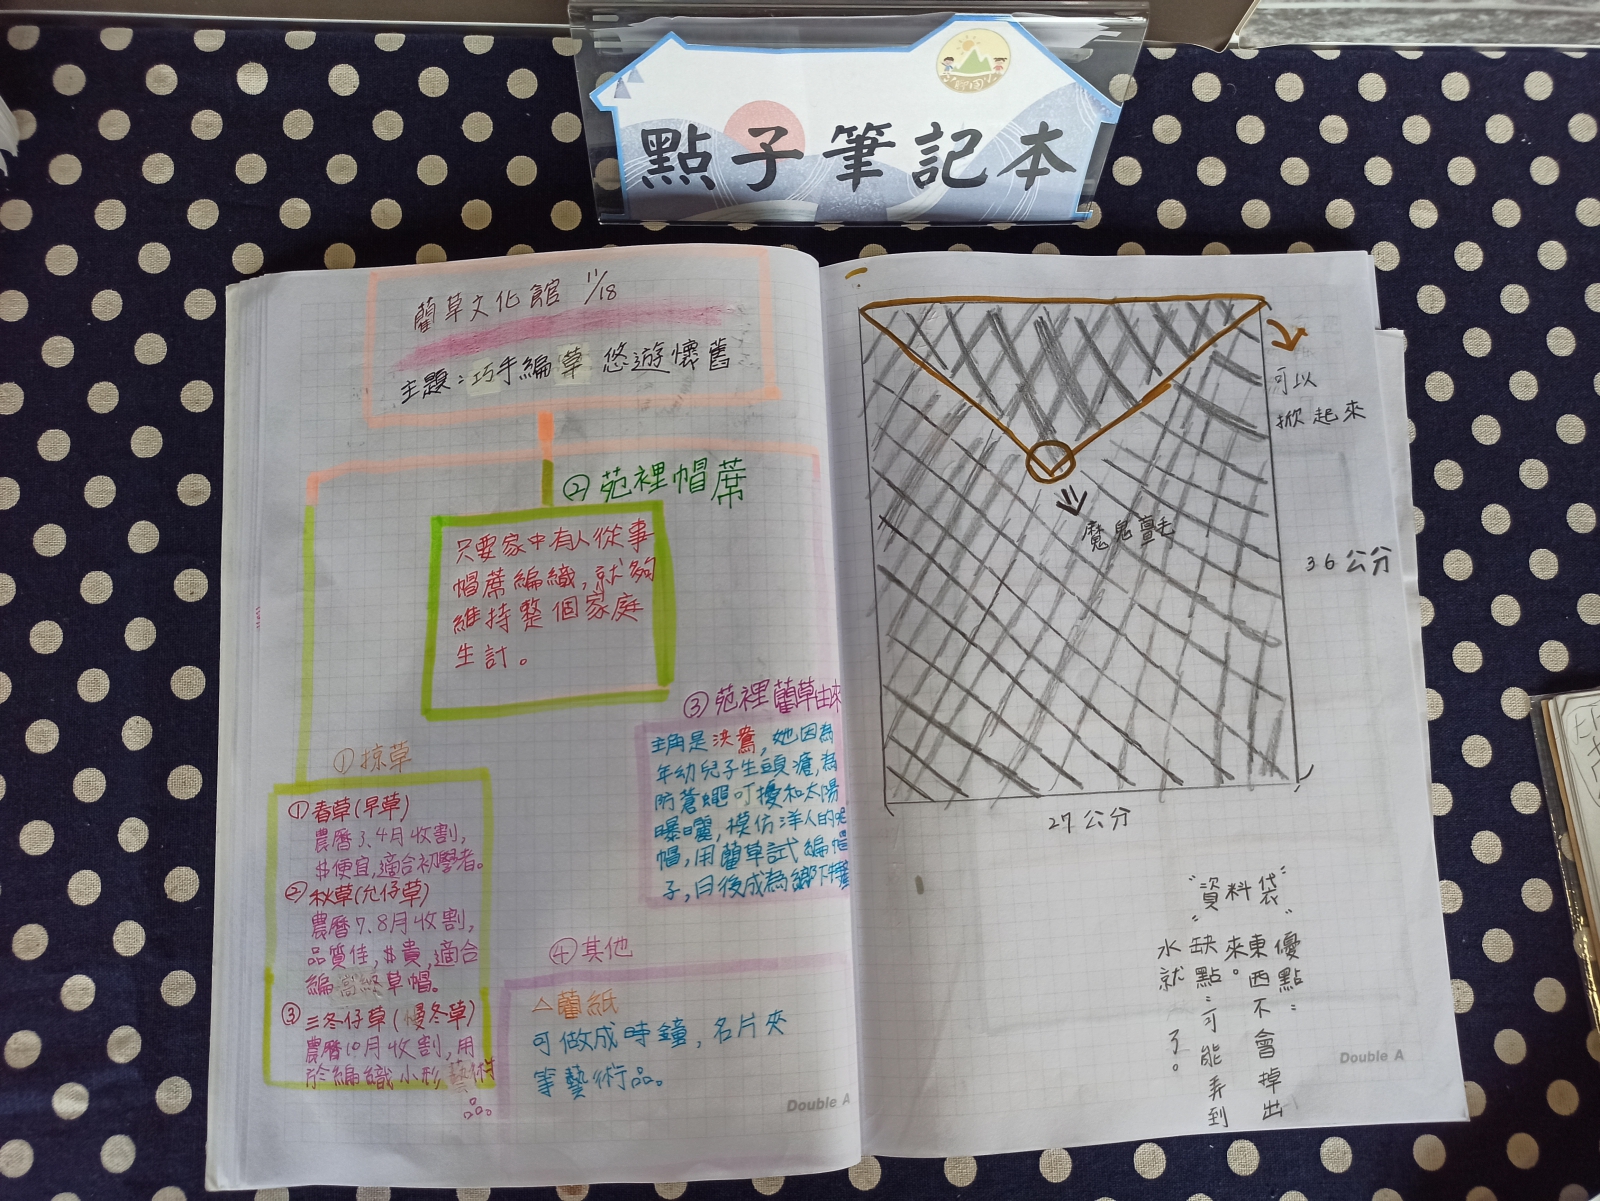 點子筆記本
藺草文化館 11/18
主題：巧手編草 悠遊懷舊
②苑裡帽蓆
只要家中有人從事
帽蓆編織,就夠
維持整個家庭
生計。
①掠草
①春草(早草)
農曆3、4月收割,
$便宜,適合初學者。
②秋草(允仔草)
農曆7、8月收割,
品質佳,$貴,適合
編高級草帽。
③三冬仔草(慢冬草)
農曆10月收割,用
於編織小形藝術
品。
③苑裡藺草由來
主角是洪鴦,她因為
年幼兒子生頭瘡,為
防蒼蠅叮擾和太陽
曝曬,模仿洋人的呢
帽,用藺草試編帽
子,日後成為鄉下特產
④其他
△藺紙
可做成時鐘,名片夾
等藝術品。
Double A
可以
掀起來
魔鬼亶毛
36公分
27公分
"資料袋"
優點:
東西不會掉出
來。
缺點:可能弄到
水就 了。
Double A